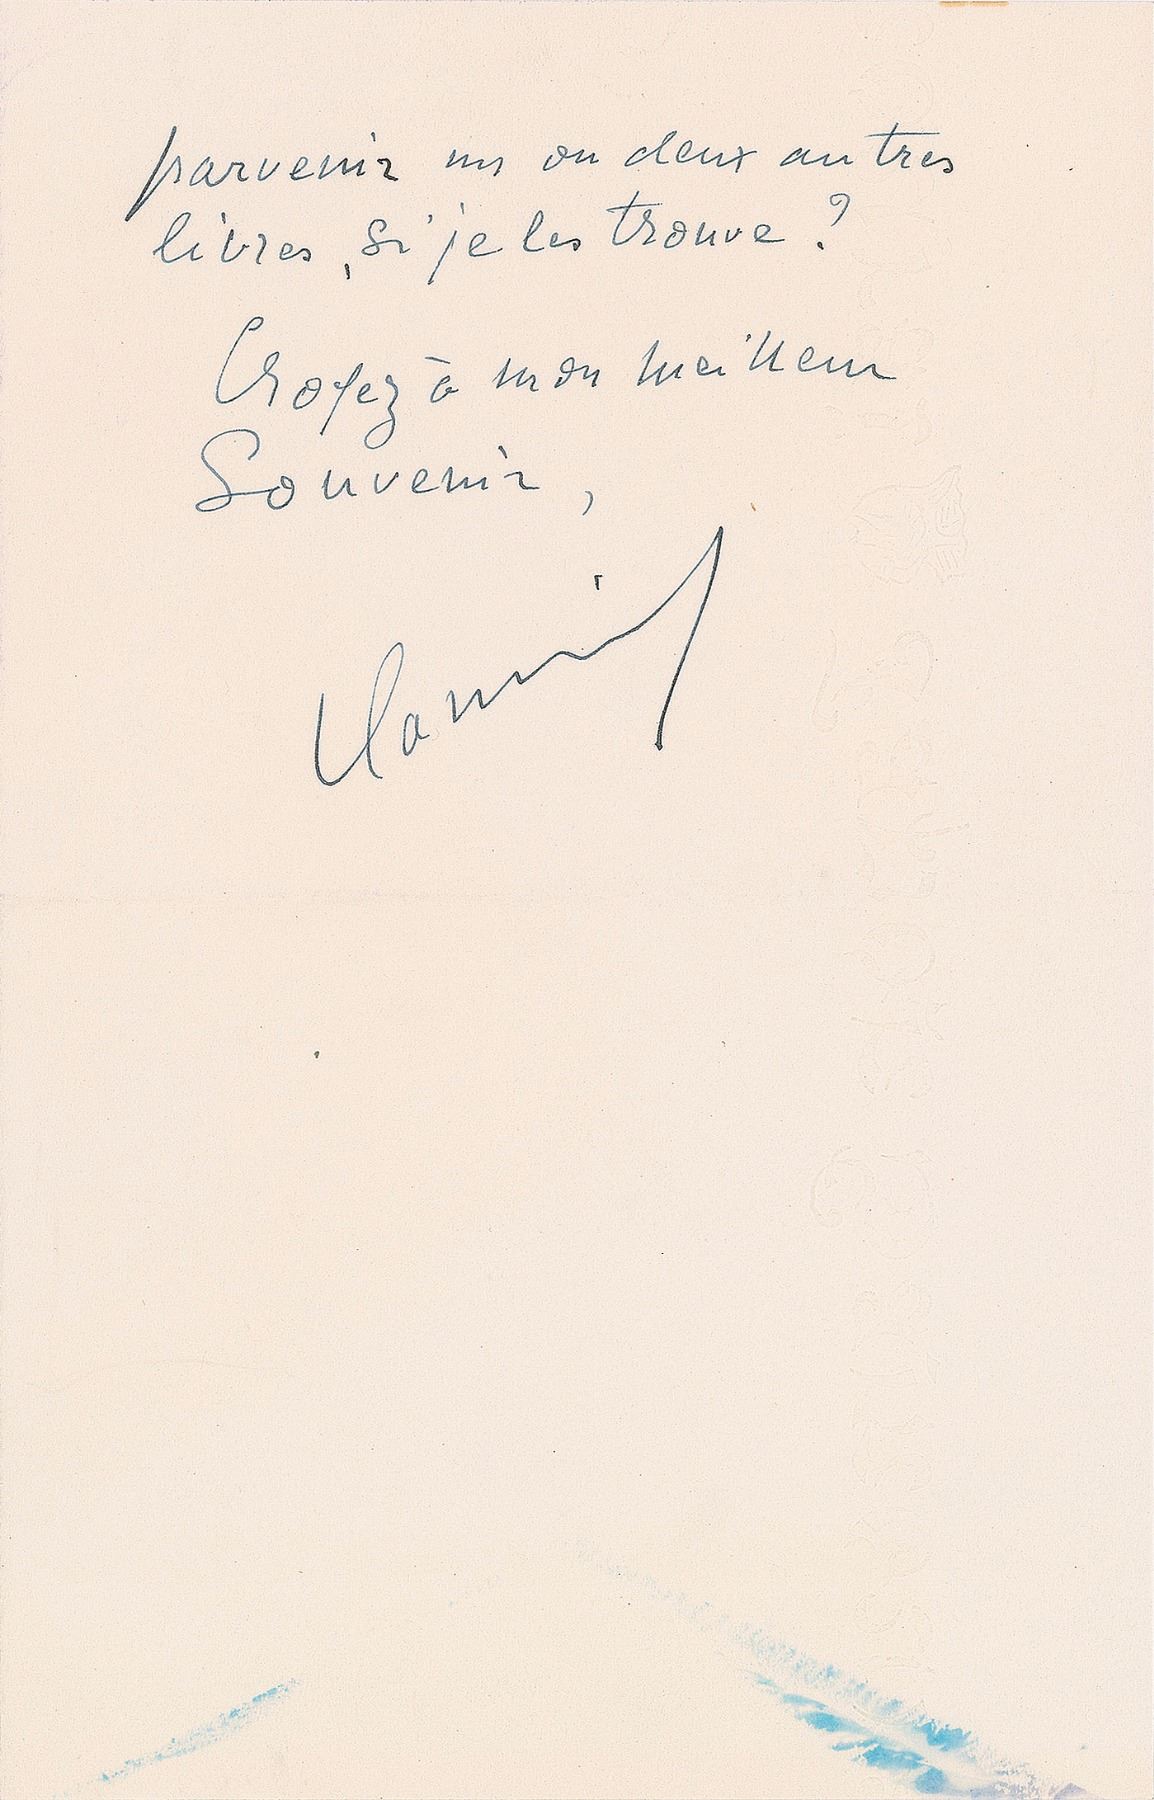 parvenir un ou deux autres
livres, si je les trouve ?
Croyez à mon meilleur
Souvenir,